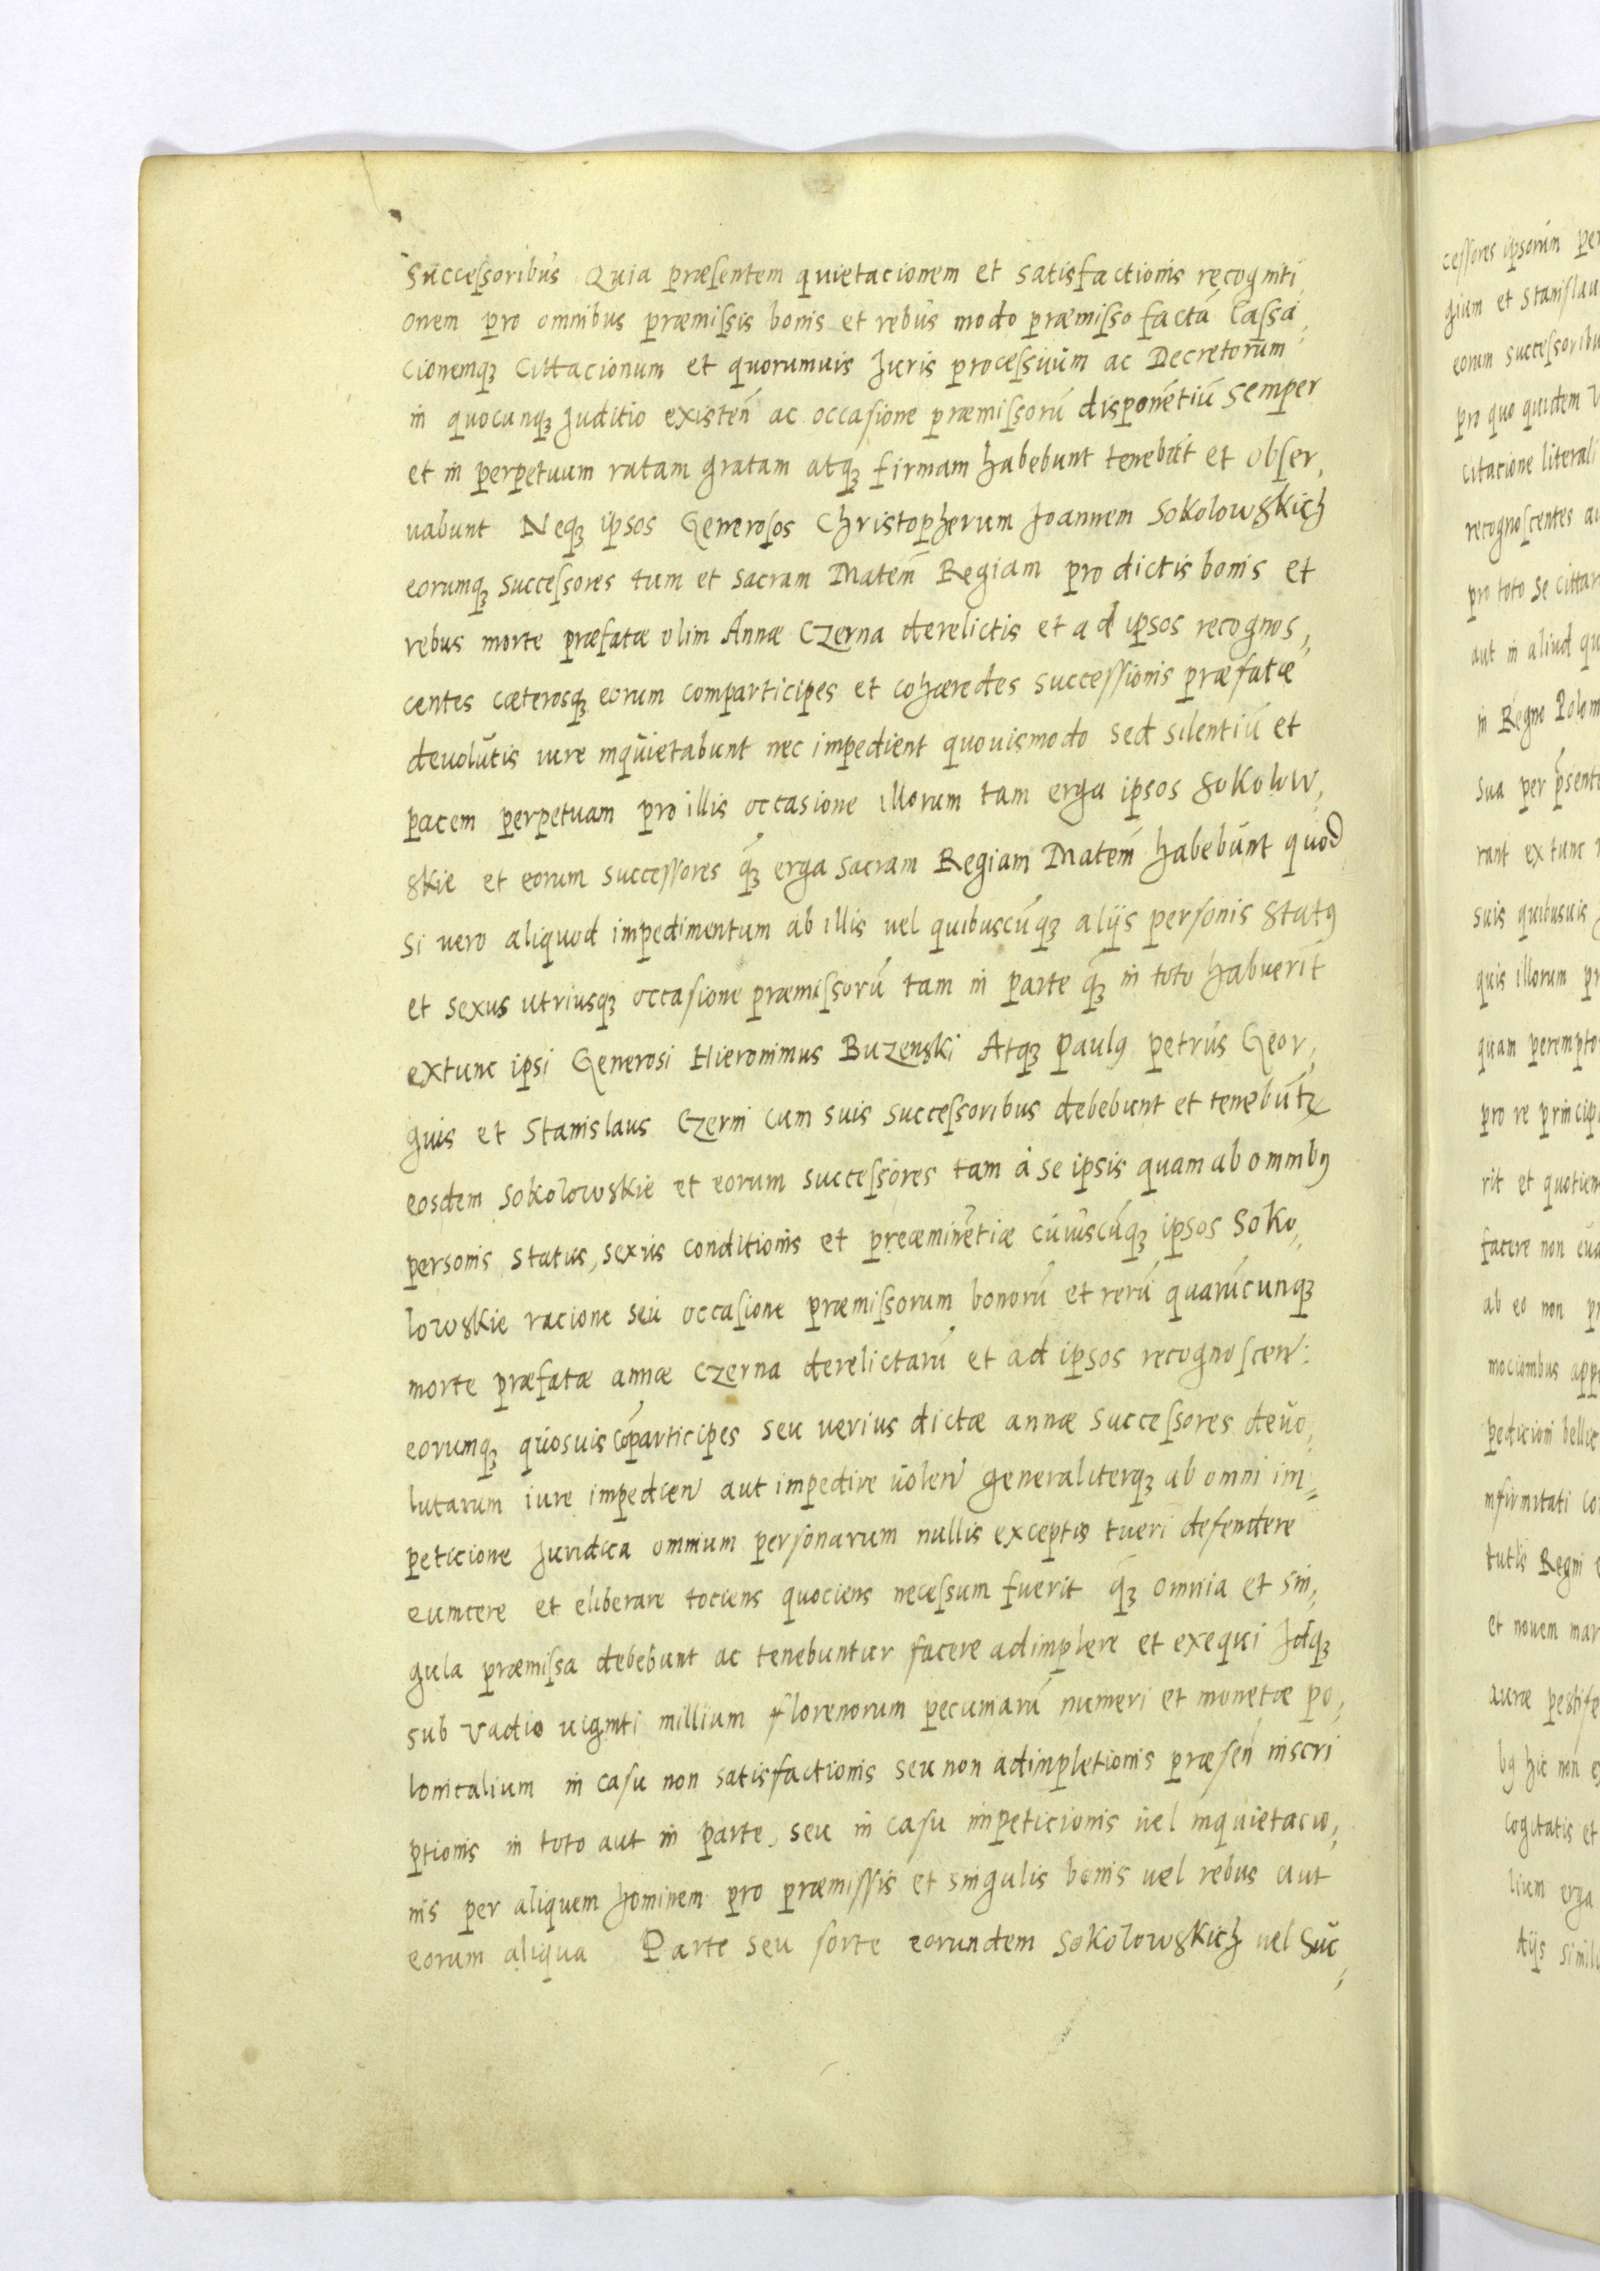 Succeſsoribus Quia præſentem quietacionem et satisfactionis recogniti,
onem pro omnibus præmiſsis bonis et rebus modo præmiſso factã Caſsa,
cionemqꝫ Cittacionum et quorumuis Juris proceſsuum ac Decretorum
in quocunqꝫ Juditio existeñ ac occaſione præmiſsorũ disponẽtiũ semper
et in perpetuum ratam gratam atqꝫ firmam habebunt tenebũt et obſer,
uabunt Neqꝫ ipsos Generoſos Christopherum Joannem Sokolowskich
eorumqꝫ succeſsores tum et sacram Matem̃ Regiam pro dictis bonis et
rebus morte præfatæ olim Annæ Czerna derelictis et ad ipsos recognos,
centes cæterosqꝫ eorum comparticipes et cohæredes successionis præfatæ
deuolutis iure inquietabunt nec impedient quouismodo sed silentiũ et
pacem perpetuam pro illis occasione illorum tam erga ipsos Sokolow,
skie et eorum successores qꝫ̃ erga sacram Regiam Matem̃ habebunt quod
si vero aliquod impedimentum ab illis vel quibuscũqꝫ alijs personis statꝰ
et sexus utriusqꝫ occaſione præmiſsorũ tam in parte qꝫ̃ in toto habuerit
extunc ipsi Generosi Hieronimus Buzenski Atqꝫ Paulꝰ petrus Geor,
gius et Stanislaus Czerni cum suis succeſsoribus debebunt et tenebũtꝛ
eosdem Sokolowskie et eorum succeſsores tam à se ipsis quam ab omnibꝰ
personis status, sexus conditionis et preæminẽtiæ cuiuscũqꝫ ipsos Soko,
lowskie racione seu occaſione præmiſsorum bonorũ et rerũ quarũcunqꝫ
morte præfatæ annæ Czerna derelictarũ et ad ipsos recognoſcen:
eorumqꝫ quosuis cõparticipes seu uerius dictæ annæ succeſsores deuo,
lutarum iure impedien aut impedire uolen generaliterqꝫ ab omni im,
peticione Juridica omnium perſonarum nullis exceptis tueri defendere
euincere et eliberare tociens quociens neceſsum fuerit qꝫ omnia et sin,
gula præmiſsa debebunt ac tenebuntur facere adimplere et exequi Jdqꝫ
sub vadio uiginti millium florenorum pecuniarũ numeri et monetæ po,
lonicalium in casu non satisfactionis seu non adimpletionis præsen̄ inscri
ptionis in toto aut in parte, seu in caſu impeticionis uel inquietacio,
nis per aliquem hominem pro præmissis et singulis bonis uel rebus aut
eorum aliqua Parte seu sorte eorundem Sokolowskich uel Suc,